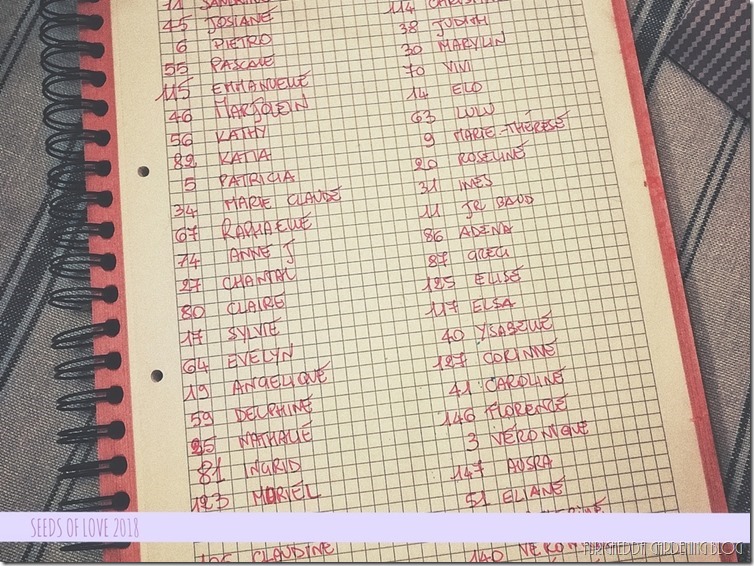 SANDRINE
45 JOSIANE
6 PIETRO
55 PASCALE
115 EMMANUELLE
46 MARJOLEIN
56 KATHY
82 KATIA
5 PATRICIA
34 MARIE CLAUDE
67 RAPHAELLE
74 ANNE J
27 CHANTAL
80 CLAIRE
17 SYLVIE
64 EVELYN
19 ANGELIQUE
59 DELPHINE
85 NATHALIE
81 INGRID
123 MURIEL
CLAUDINE
114
38 JUDITH
30 MARYLIN
70 VIVI
14 ELO
63 LULU
9 MARIE-THÉRÈSE
20 ROSELINE
31 INES
11 JR BAUD
86 ADENA
87 GREG
125 ELISE
117 ELSA
40 YSABELLE
127 CORINNE
41 CAROLINE
146 FLORENCE
3 VÉRONIQUE
147 AUSRA
51 ELIANE
140
SEEDS OF LOVE 2018
GARDENING BLOG